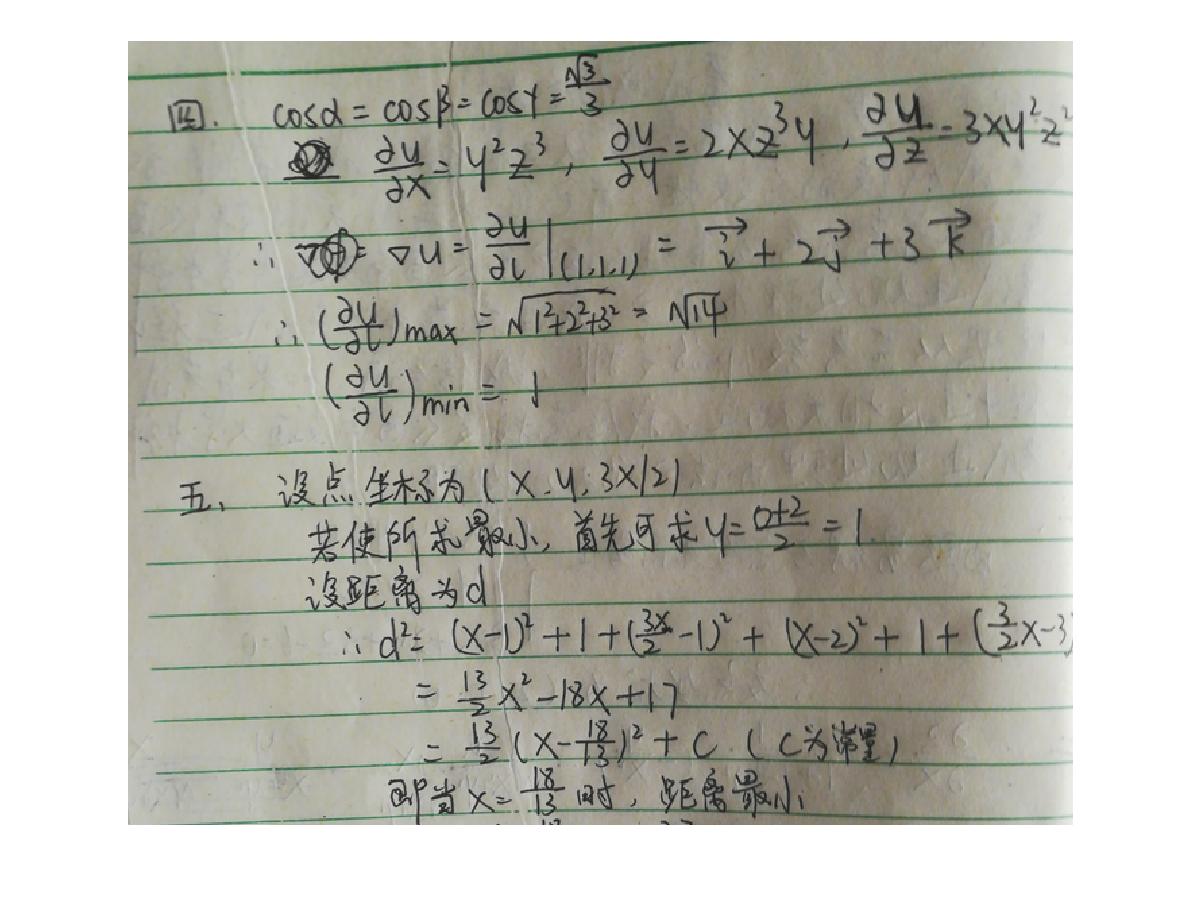 四. cosα = cosβ = cosγ = √3/3
∂u/∂x = y²z³, ∂u/∂y = 2xz³y, ∂u/∂z = 3xy²z²
∴ ∇u = ∂u/∂l |(1,1,1) = i⃗ + 2j⃗ + 3k⃗
∴ (∂u/∂l)max = √(1²+2²+3²) = √14
(∂u/∂l)min = 1
五、 设点坐标为 (x, y, 3x/2)
若使所求最小, 首先可求 y = (0+2)/2 = 1.
设距离为d
∴ d² = (x-1)² + 1 + (3x/2 - 1)² + (x-2)² + 1 + (3/2 x - 3)
= 13/2 x² - 18x + 17
= 13/2 (x - 18/13)² + C (C为常量)
即当 x = 18/13 时, 距离最小